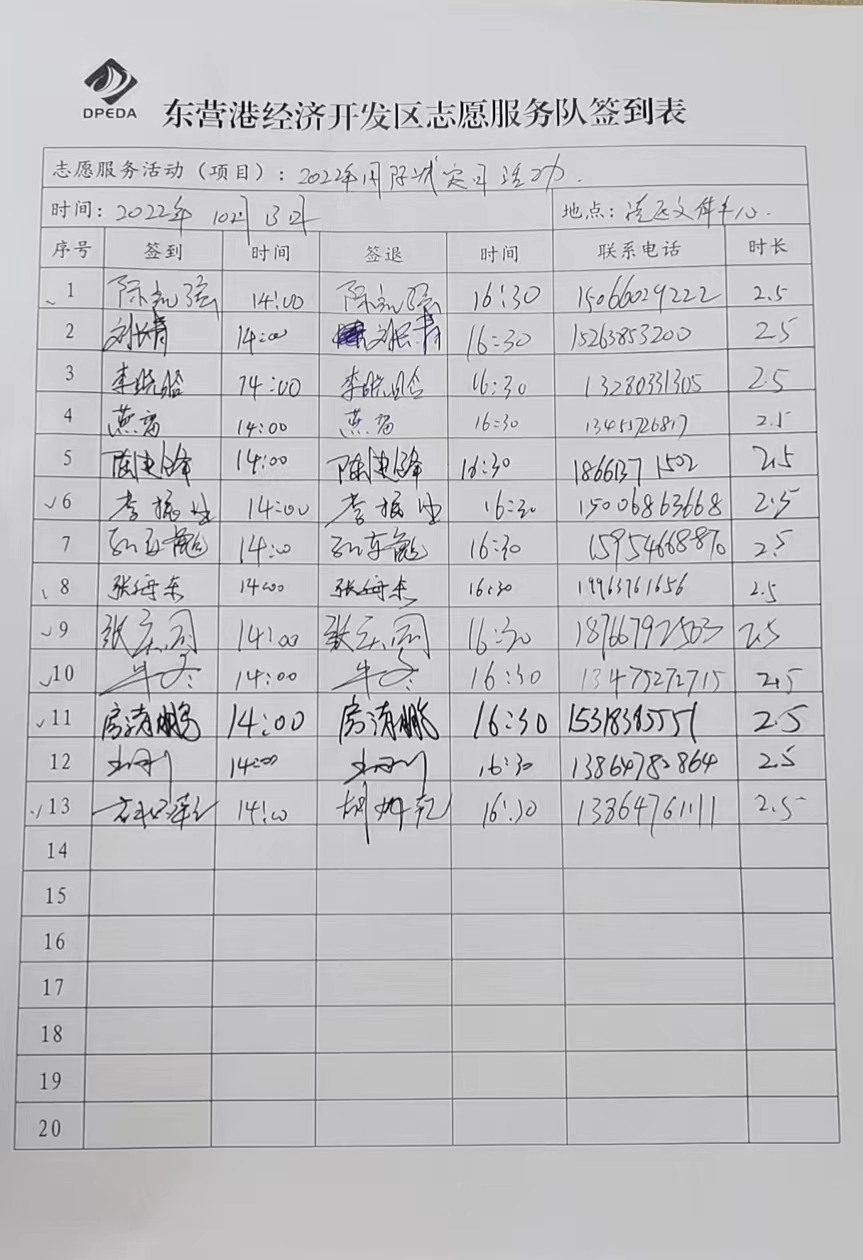 DPEDA
东营港经济开发区志愿服务队签到表
志愿服务活动（项目）：2022年
时间：2022年 10月13日 地点：
序号 签到 时间 签退 时间 联系电话 时长
1 14:00 16:30 15066029222 2.5
2 刘长青 14:00 刘长青 16:30 15263853200 2.5
3 李晓晗 14:00 李晓晗 16:30 13280331305 2.5
4 燕富 14:00 燕富 16:30 2.5
5 陈建锋 14:00 陈建锋 16:30 18661371502 2.5
6 李振生 14:00 李振生 16:30 15006863668 2.5
7 14:00 16:30 15954668870 2.5
8 张海东 14:00 张海东 16:30 19963761656 2.5
9 张庆国 14:00 张庆国 16:30 18766792503 2.5
10 牛冬 14:00 牛冬 16:30 13475272715 2.5
11 房清鹏 14:00 房清鹏 16:30 15318385551 2.5
12 14:00 16:30 13864782864 2.5
13 14:00 16:30 13864761111 2.5
14
15
16
17
18
19
20